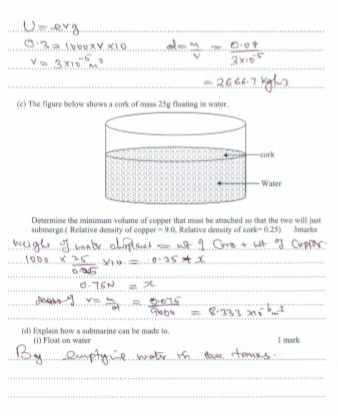 U = ρvg
0.3 = 1000 × V × 10
V = 3×10⁻⁵ m³
d = m/v = 0.08/3×10⁻⁵
= 2666.7 kg/m³
(c) The figure below shows a cork of mass 25g floating in water.
cork
Water
Determine the minimum volume of copper that must be attached so that the two will just
submerge.( Relative density of copper = 9.0, Relative density of cork= 0.25) 3marks
weight of water displaced = wt of Cork + wt of Copper
1000 × 25/0.25 × 10 = 0.25 + x
0.75N = x
v = m/d = 0.075/9000 = 8.333 ×10⁻⁶ m³
(d) Explain how a submarine can be made to.
(i) Float on water 1 mark
By emptying water in the tanks.